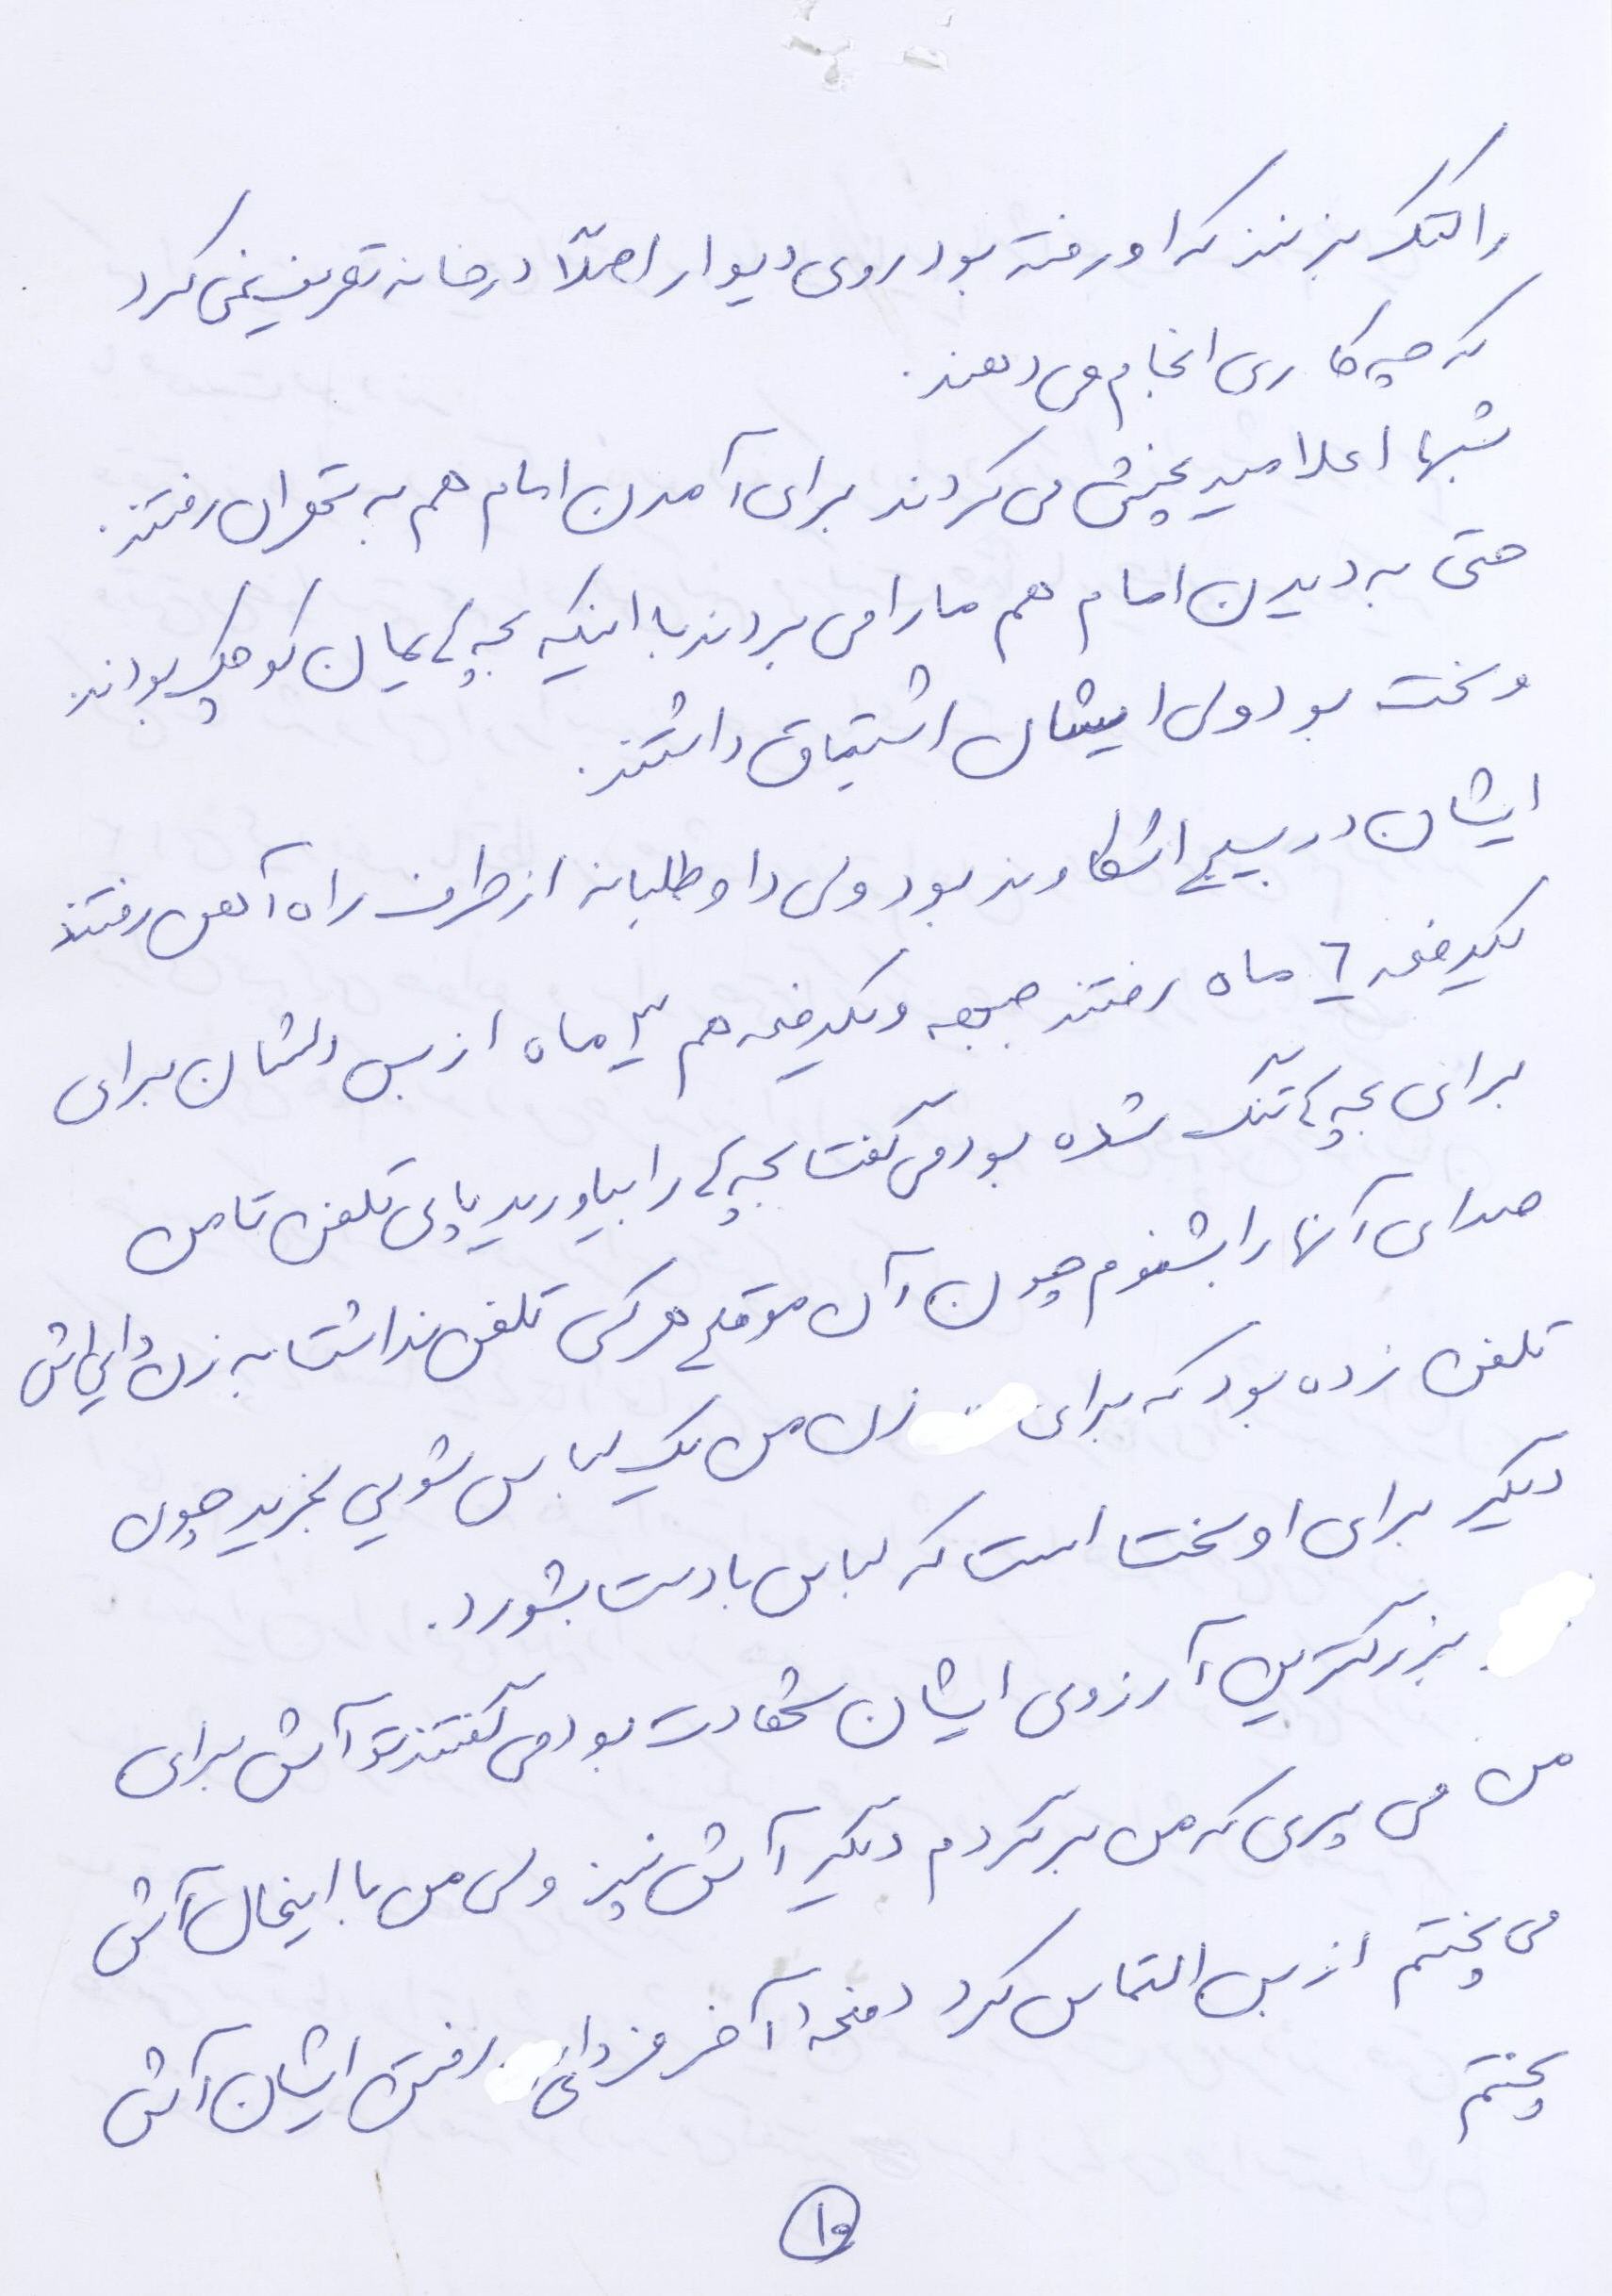 را کتک بزنند که او رفته بود روی دیوار اصلاً در خانه تعریف نمی کرد
که چه کاری انجام می دهند.
شبها اعلامیه پخش می کردند برای آمدن امام هم به تهران رفتند.
حتی به دیدن امام هم ما را می بردند با اینکه بچه هایمان کوچک بودند
و سخت بود ولی ایشان اشتیاق داشتند.
ایشان در بسیج اشکاوند بود ولی داوطلبانه از طرف راه آهن رفتند
یکدفعه ٦ ماه رفتند جبهه و یکدفعه هم ۳ ماه از بس دلشان برای
برای بچه ها تنگ شده بود می گفت بچه ها را بیاورید پای تلفن تا من
صدای آنها را بشنوم چون آن موقع هر کسی تلفن نداشت به زن دایی اش
تلفن زده بود که برای زن من یک لباس شویی بخرید چون
دیگر برای او سخت است که لباس با دست بشورد.
بزرگترین آرزوی ایشان شهادت بود می گفتند تو آش برای
من می پزی که من برگردم دیگر آش نپز ولی من با اینحال آش
می پختم از بس التماس کرد دفعه آخر فردای رفتن ایشان آش
پختم
۱۵